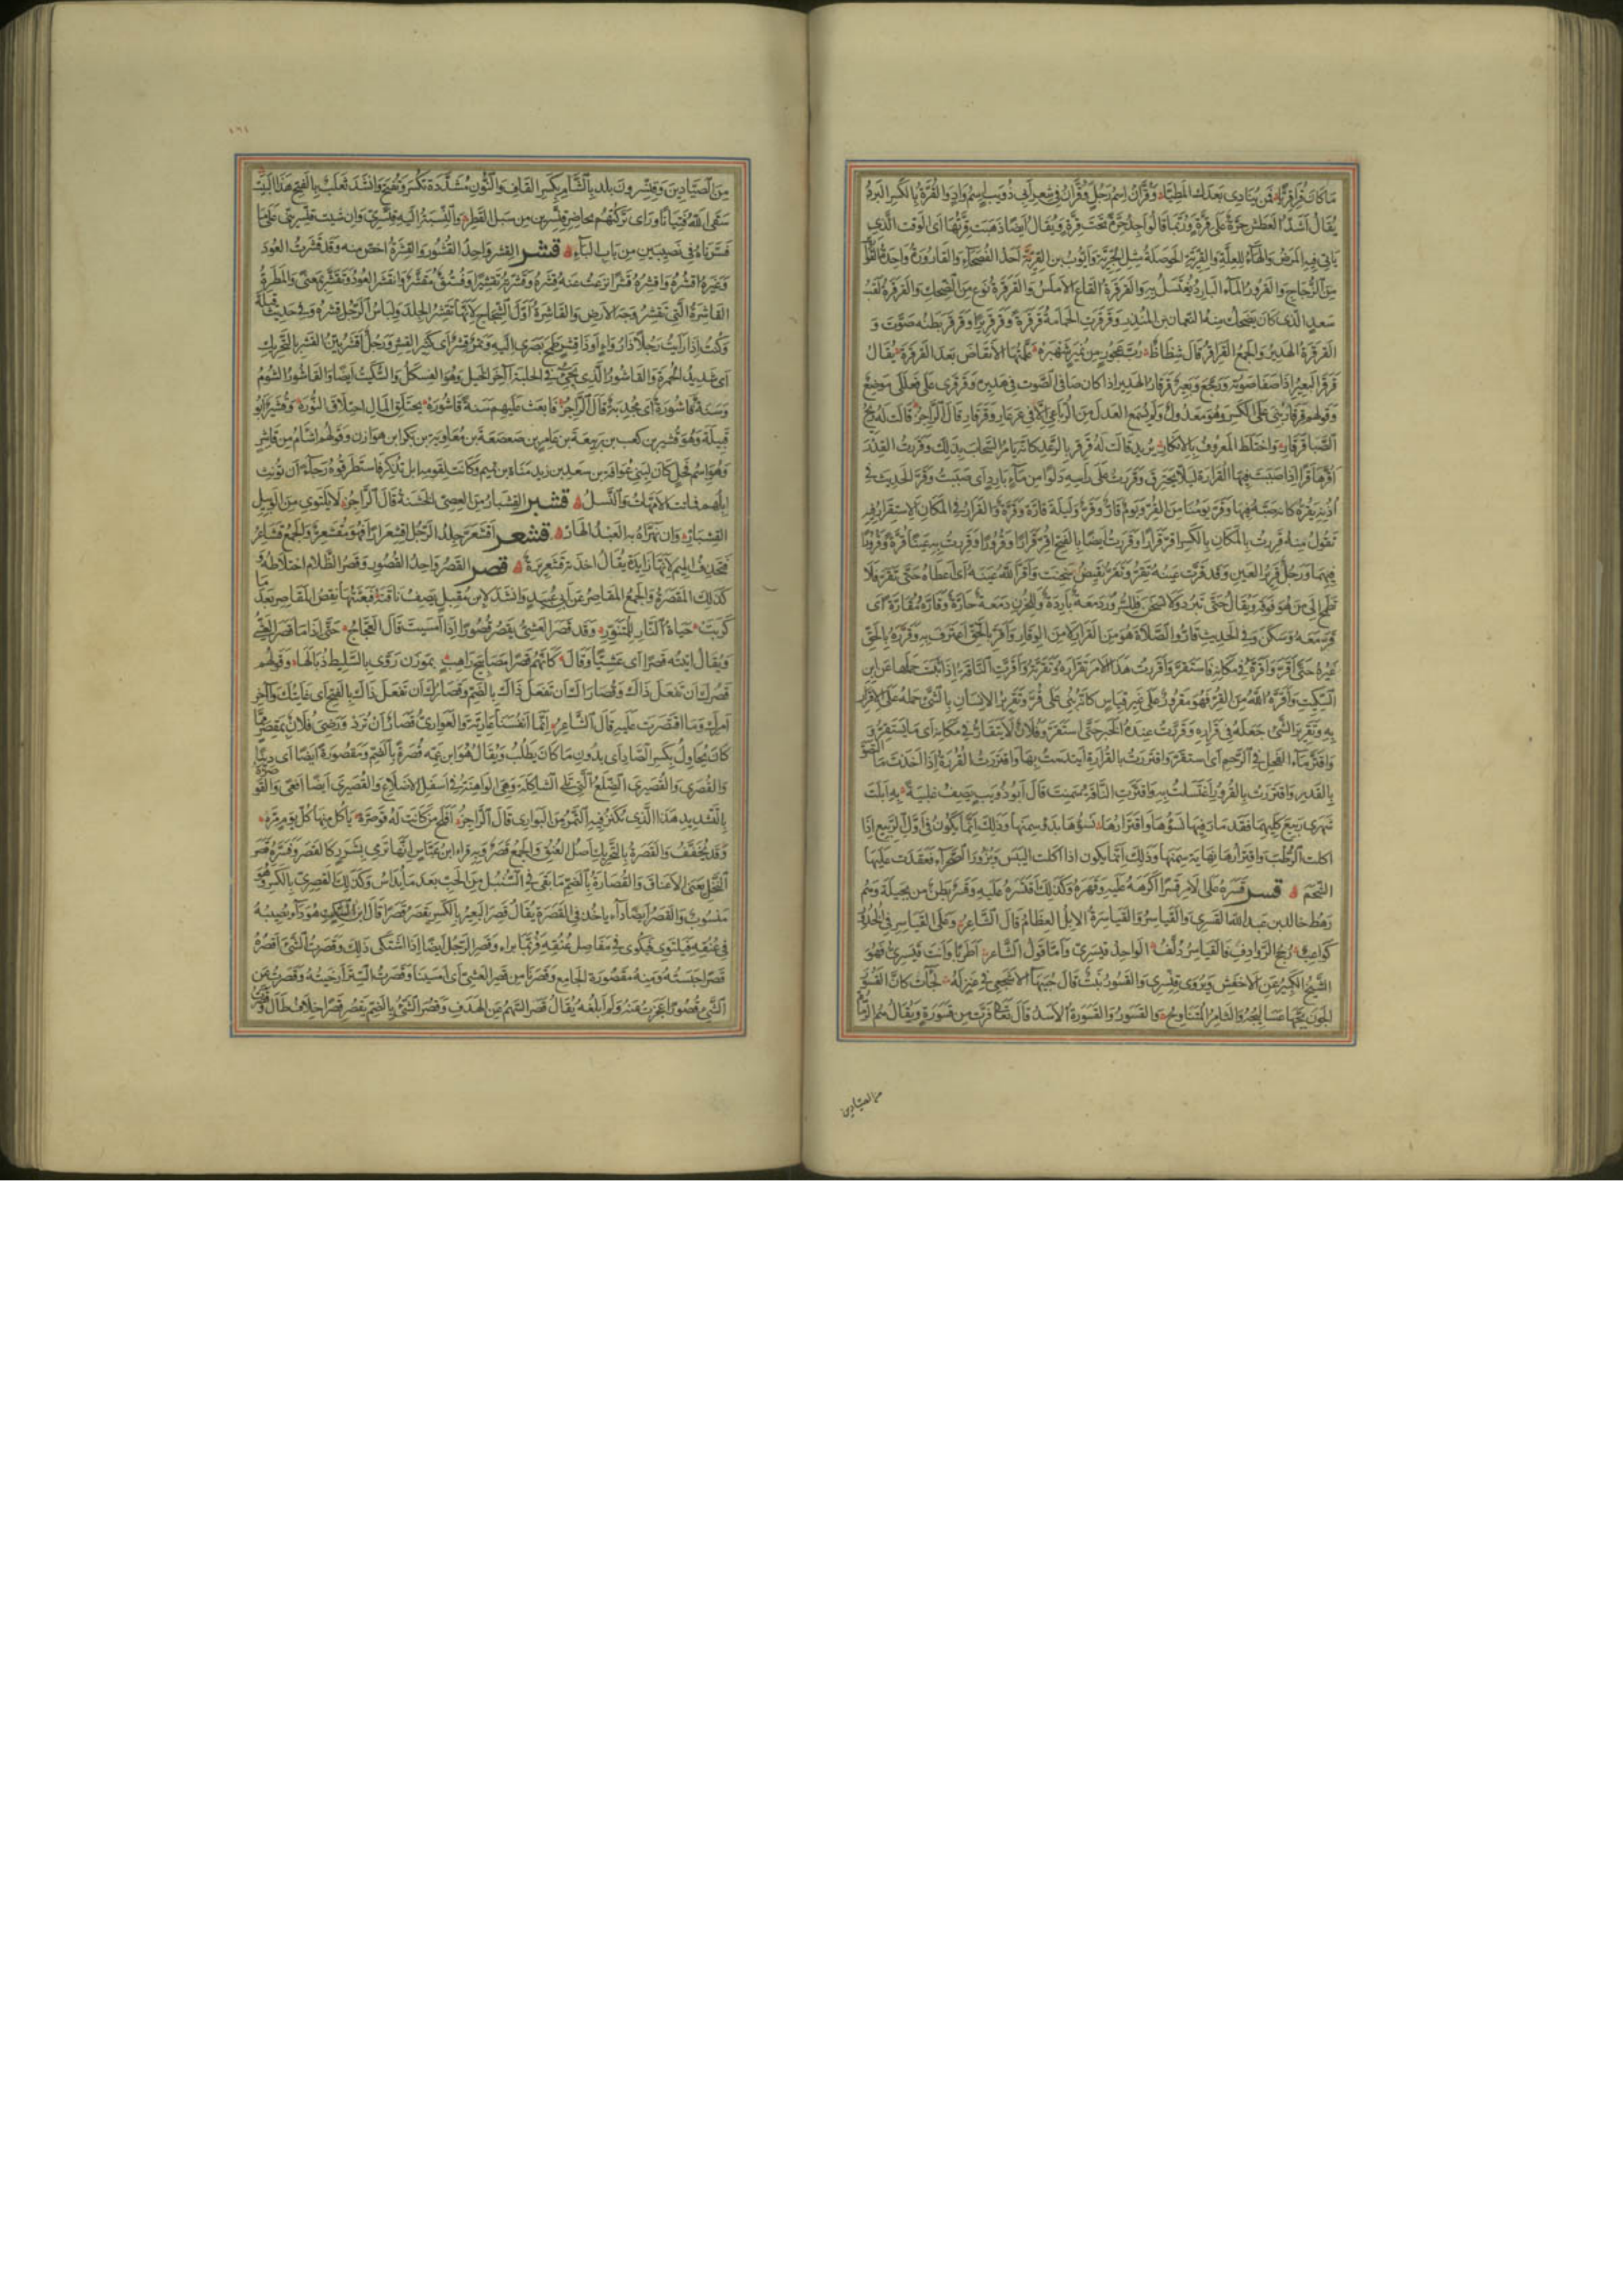 ما كان قراقريا فمن ينادى بعدك المطيا وقران اسم رجل وقران فى شعر ابى ذويب اسم واد والقرة بالكسر البرد
يقال اشد العطش حرة على قرة وربما قالوا اجد حرة تحت قرة ويقال ايضا ذهبت قرتها اى الوقت الذى
ياتى فيه المرض والهاء للعلة والقرية الحوصلة مثل الجرية وايوب بن القرية احد الفصحاء والقارورة واحدة القوارير
من الزجاج والقرور الماء البارد يغتسل به والقرقرة القاع الاملس والقرقرة نوع من الضحك والقرقرة لقب
سعد الذى كان يضحك منه النعمان بن المنذر وقرقرت الحمامة قرقرة وقرقريرا وقرقر بطنه صوت و
القرقرة الهدير والجمع القراقر قال شظاظ رب عجوز من نمير شهبره علمتها الانقاض بعد القرقره يقال
قرقر البعير اذا صفا صوته ورجع وبعير قرقار الهدير اذا كان صافى الصوت فى هديره وقرقرى على فعللى موضع
وقولهم قرقار بنى على الكسر وهو معدول ولم يسمع العدل من الرباعى الا فى عرعار وقرقار قال الراجز قالت له ريح
الصبا قرقار واختلط المعروف بالانكار يريد قالت له قرقر بالرعد كانه يامر السحاب بذلك وقررت القدر
اقرها قرا اذا صببت فيها القرارة ليلا يحترق وقررت على راسه دلوا من ماء بارد اى صببت وقر الحديث فى
اذنه يقره كانه صبه فيها وقر يومنا من القر ويوم قار وقر وليلة قارة وقرة والقرار فى المكان الاستقرار فيه
تقول منه قررت بالمكان بالكسر اقر قرارا وقررت ايضا بالفتح اقر قرارا وقرورا وقررت به عينا قرة وقرورا
فيهما ورجل قرير العين وقد قرت عينه تقر وتقر نقيض سخنت واقر الله عينه اى اعطاه حتى تقر فلا
تطمح الى من هو فوقه ويقال حتى تبرد ولا تسخن فللسرور دمعة باردة وللحزن دمعة حارة وقاره مقارة اى
قر معه وسكن وفى الحديث قاروا الصلاة هو من القرار لا من الوقار واقر بالحق اعترف به وقرره بالحق
غيره حتى اقر واقره فى مكانه فاستقر واقررت هذا الامر تقراره وتقرته واقرت الناقة اذا ثبت حملها عن ابن
السكيت واقره الله من القر فهو مقرور على غير قياس كانه بنى على قر وتقرير الانسان بالشئ حمله على الاقرار
به وتقرير الشئ جعله فى قراره وقررت عنده الخبر حتى استقر وفلان لا يتقار فى مكانه اى ما يستقر
واقتر ماء الفحل فى الرحم اى استقر واقتررت بالقرارة ايتدمت بها واقتررت القررة اذا اخذت ما التصق
بالقدر واقتررت بالقرور اغتسلت به واقترت الناقة سمنت قال ابو ذويب يصف ظبية به ابلت
شهرى ربيع كليهما فقد مار فيها نسؤها واقترارها نسؤها بدؤ سمنها وذلك انما يكون فى اول الربيع اذا
اكلت الرطب واقترارها نهاية سمنها وذلك انما يكون اذا اكلت اليبس وبزور الصحراء فعقدت عليها
الشحم قسر قسره على الامر قسرا اكرهه عليه وقهره وكذلك اقتسره عليه وقسر بطن من بجيلة وهم
رهط خالد بن عبد الله القسرى والقياسر والقياسرة الابل العظام قال الشاعر وعلى القياسر فى الخدور
كواعب رجح الروادف فالقياسر دلف الواحد قيسرى واما قول الشاعر اطربا وانت قيسرى فهو
الشيخ الكبير عن الاخفش ويروى قنسرى والقسور نبت قال جبيها الاشجعى فى عنز له لجات كان القسور
الجون بجها عساليجه والثامر المتناوح والقسور والقسورة الاسد قال تعالى فرت من قسورة ويقال هم الرماة
من الصيادين
١٦١
من الصيادين وقنسرون بلد بالشام بكسر القاف والنون مشددة تكسر وتفتح وانشد ثعلب بالفتح هذا البيت
سقى الله فتيانا وراى تركتهم بحاضر قنسرين من سبل القطر والنسبة اليه قنسرى وان شيت قنسرينى على ما
فسرناه فى نصيبين من باب الباء قشر القشر واحد القشور والقشرة اخص منه وقد قشرت العود
وغيره اقشره واقشره قشرا نزعت عنه قشره وقشرته تقشيرا وفستق مقشر وانقشر العود وتقشر بمعنى والمطرة
القاشرة التى تقشر وجه الارض والقاشرة اول الشجاج لانها تقشر الجلد ولباس الرجل قشره وفى حديث قيلة
وكنت اذا رايت رجلا ذا رواء او ذا قشر طمح بصرى اليه وتمر قشر اى كثير القشر ورجل اقشر بين القشر بالتحريك
اى شديد الحمرة والقاشور الذى يجئ فى الحلبة آخر الخيل وهو الفسكل والسكيت ايضا والقاشور الشوم
وسنة قاشورة اى مجدبة قال الراجز فابعث عليهم سنة قاشوره تحتلق المال احتلاق النوره وقشير ابو
قبيلة وهو قشير بن كعب بن ربيعة بن عامر بن صعصعة بن معاوية بن بكر ابن هوازن وقولهم اشام من قاشر
وهو اسم فحل كان لبنى عوافة بن سعد بن زيد مناة بن تميم وكانت لقومه ابل تذكر فاستطرقوه رجاء ان تونث
ابلهم فماتت الامهات والنسل قشبر القشبار من العصى الخشنة قال الراجز لا يلتوى من الوبيل
القشبار وان تهراه به العبد الهار قشعر اقشعر جلد الرجل اقشعرارا فهو مقشعر والجمع قشاعر
فتحذف الميم لانها زايدة يقال اخذته قشعريرة قصر القصر واحد القصور وقصر الظلام اختلاطه و
كذلك المقصرة والجمع المقاصر عن ابى عبيد وانشد لابن مقبل يصف ناقته فبعثتها تقص المقاصر بعد ما
كربت حياة النار للمتنور وقد قصر العشى يقصر قصورا اذا امسيت قال العجاج حتى اذا ما قصر العشى
ويقال اتيته قصرا اى عشيا وقال كانهم قصرا مصابيح راهب بموزن روى بالسليط ذبالها وقولهم
قصرك ان تفعل ذاك وقصارك ان تفعل ذاك بالضم وقصارك ان تفعل ذاك بالفتح اى غايتك وآخر
امرك وما اقتصرت عليه قال الشاعر انما انفسنا عارية والعوارى قصار ان ترد ورضى فلان بمقصر مما
كان يحاول بكسر الصاد اى بدون ما كان يطلب ويقال هو ابن عمه قصرة بالضم ومقصورة ايضا اى دنيا
والقصرى والقصيرى الضلع التى تلى الشاكلة وهى الواهنة فى اسفل الاضلاع والقصيرى ايضا افعى والقوصرة
بالتشديد هذا الذى يكنز فيه التمر من البوارى قال الراجز افلح من كانت له قوصره ياكل منها كل يوم مره
وقد يخفف والقصرة بالتحريك اصل العنق والجمع قصر وبه قراء ابن عباس انها ترمى بشرر كالقصر وفسره قصر
النخل يعنى الاعناق والقصارة بالضم ما بقى فى السنبل من الحب بعد ما يداس وكذلك القصرى بالكسر وهو
منسوب والقصر ايضا داء ياخذ فى القصرة يقال قصر البعير بالكسر يقصر قصرا قال ابن السكيت هو داء يصيبه
فى عنقه فيلتوى فيكوى فى مفاصل عنقه فربما براء وقصر الرجل ايضا اذا اشتكى ذلك وقصرت الشئ اقصره
قصرا حبسته ومنه مقصورة الجامع وقصرنا من قصر العشى اى امسينا وقصرت الستر ارخيته وقصرت عن
الشئ قصورا عجزت عنه ولم ابلغه يقال قصر السهم عن الهدف وقصر الشئ بالضم يقصر قصرا خلاف طال